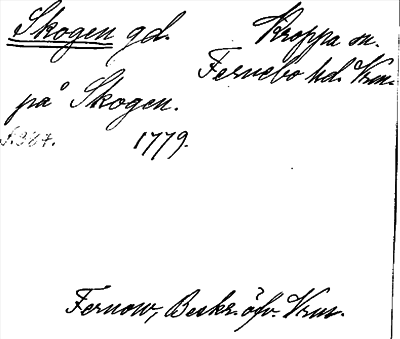 Skogen gd.
Kroppa sn.
Fernebo hd. Vrm.
på Skogen.
s. 367. 1779.
Fernow, Beskr. öfv. Vrm.